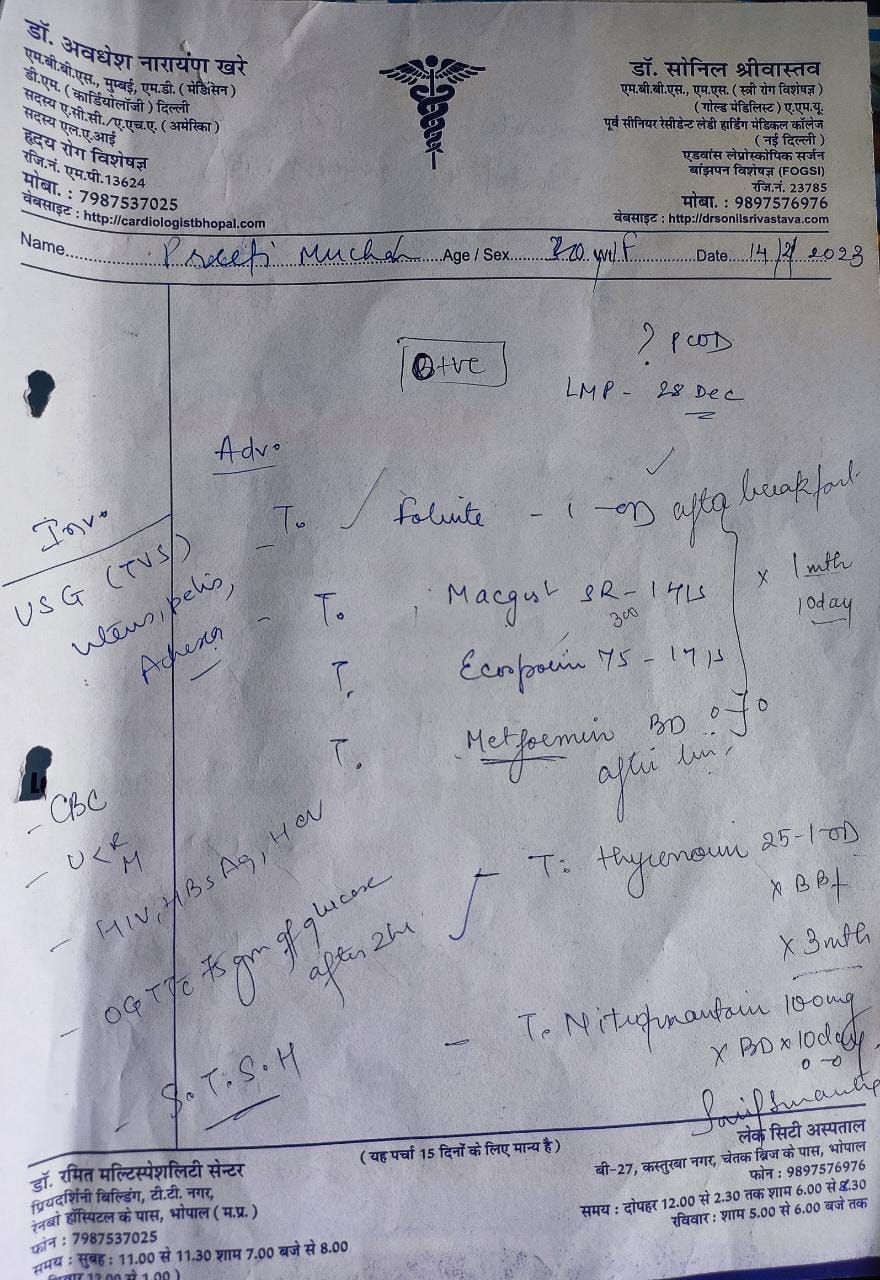 डॉ. अवधेश नारायण खरे
एम.बी.बी.एस., मुम्बई, एम.डी. ( मेडिसिन )
डी.एम. ( कार्डियोलॉजी ) दिल्ली
सदस्य ए.सी.सी./ए.एच.ए. ( अमेरिका )
सदस्य एल.ए.आई
हृदय रोग विशेषज्ञ
रजि.नं. एम.पी.13624
मोबा. : 7987537025
वेबसाइट : http://cardiologistbhopal.com
डॉ. सोनिल श्रीवास्तव
एम.बी.बी.एस., एम.एस. ( स्त्री रोग विशेषज्ञ )
( गोल्ड मेडिलिस्ट ) ए.एम.यू.
पूर्व सीनियर रेसीडेन्ट लेडी हार्डिंग मेडिकल कॉलेज
( नई दिल्ली )
एडवांस लेप्रोस्कोपिक सर्जन
बांझपन विशेषज्ञ (FOGSI)
रजि.नं. 23785
मोबा. : 9897576976
वेबसाइट : http://drsonilsrivastava.com
Name Preeti Age / Sex yr/F Date 14/2/2023
? PCOD
B+ve
LMP - 28 Dec
Adv.
T. Folvite - 1 - OD after breakfast
T. SR - 1 HS
300
x 1 mth
10 day
T. Ecosprin 75 - 1 HS
T. Metformin BD
after
T. 25 - 1 OD
x BBf
x 3 mth
T. Nitrofurantoin 100mg
x BD x 10 day
Inv.
USG (TVS)
uterus, pelvis,
Adnexa
- CBC
- U < R M
- HIV, HBsAg, HCV
- OGTT c 75 gm of glucose
after 2 hr
- S.T.S.H
( यह पर्चा 15 दिनों के लिए मान्य है )
डॉ. रमित मल्टिस्पेशलिटी सेन्टर
प्रियदर्शिनी बिल्डिंग, टी.टी. नगर,
रेनबो हॉस्पिटल के पास, भोपाल ( म.प्र. )
फोन : 7987537025
समय : सुबह : 11.00 से 11.30 शाम 7.00 बजे से 8.00
लेक सिटी अस्पताल
बी-27, कस्तुरबा नगर, चेतक ब्रिज के पास, भोपाल
फोन : 9897576976
समय : दोपहर 12.00 से 2.30 तक शाम 6.00 से 8.30
रविवार : शाम 5.00 से 6.00 बजे तक